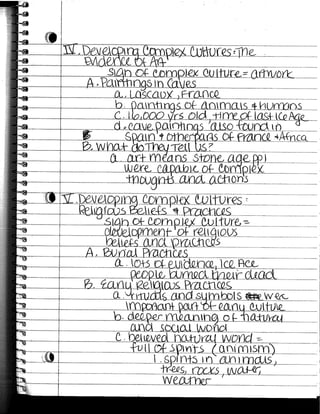 IV. Developing Complex Cultures: The
Evidence of Art
Sign of complex culture = artwork
A. Paintings in Caves
a. Lascaux, France
b. paintings of animals + humans
c. 16,000 yrs old, time of last Ice Age
d. cave paintings also found in
Spain + other parts of France + Africa
B. What do They Tell Us?
a. art means stone age ppl
were capable of complex
thoughts and actions
V. Developing Complex Cultures:
Religious Beliefs + Practices
Sign of complex culture =
development of religious
beliefs and practices
A. Burial Practices
a. lots of evidence, Ice Age
people buried their dead
B. Early Religious Practices
a. rituals and symbols were
important part of early culture
b. deeper meaning of natural
and social world
c. believed natural world =
full of spirits (animism)
1. spirits in animals,
trees, rocks, water,
weather